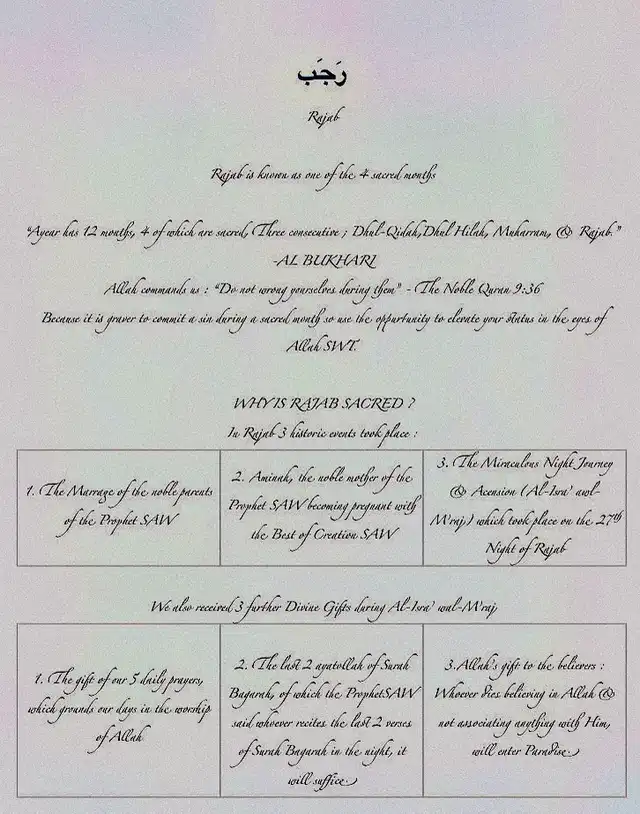 رَجَب
Rajab
Rajab is known as one of the 4 sacred months
"Ayear has 12 months, 4 of which are sacred, Three consecutive ; Dhul-Qidah,Dhul Hilah, Muharram, & Rajab."
-AL BUKHARI
Allah commands us : "Do not wrong yourselves during them" - The Noble Quran 9:36
Because it is graver to commit a sin during a sacred month so use the oppurtunity to elevate your status in the eyes of
Allah SWT.
WHY IS RAJAB SACRED ?
In Rajab 3 historic events took place :
1. The Marrage of the noble parents
of the Prophet SAW
2. Aminah, the noble mother of the
Prophet SAW becoming pregnant with
the Best of Creation SAW
3. The Miraculous Night Journey
& Acension (Al-Isra' awl-
M'raj,) which took place on the 27th
Night of Rajab
We also received 3 further Divine Gifts during Al-Isra' wal-M'raj
1. The gift of our 5 daily prayers,
which grounds our days in the worship
of Allah
2. The last 2 ayatollah of Surah
Baqarah, of which the ProphetSAW
said whoever recites the last 2 verses
of Surah Baqarah in the night, it
will suffice.
3.Allah's gift to the believers :
Whoever dies believing in Allah &
not associating anything with Him,
will enter Paradise.